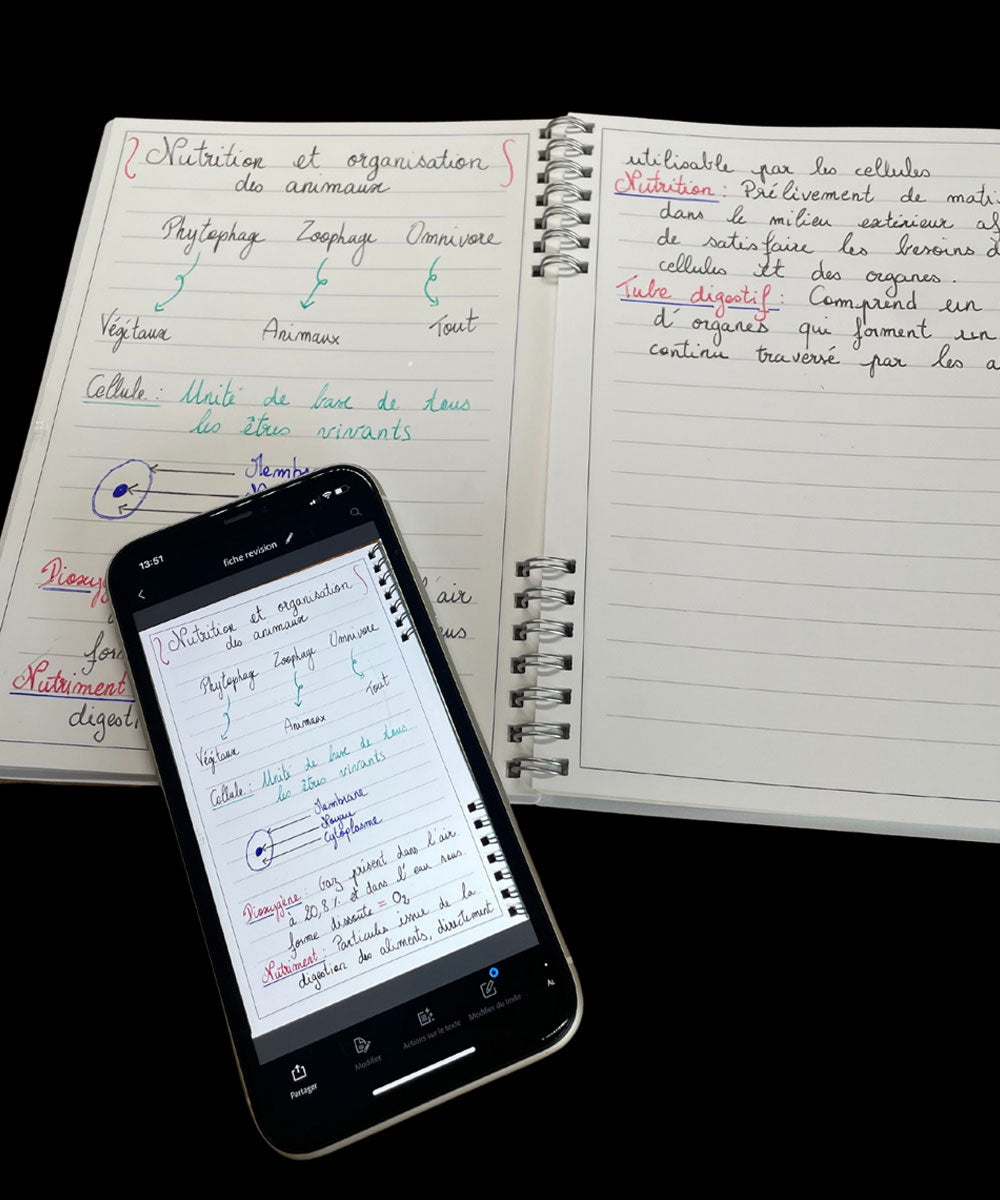 Nutrition et organisation
des animaux
Phytophage Zoophage Omnivore
Végétaux Animaux Tout
Cellule : Unité de base de tous
les êtres vivants
Memb
Dioxyg
air
for
Nutriment
digesti
utilisable par les cellules
Nutrition : Prélivement de mati
dans le milieu extérieur af
de satisfaire les besoins d
cellules et des organes.
Tube digestif : Comprend un
d'organes qui forment un
continu traversé par les a
13:51
fiche revision
Nutrition et organisation
des animaux
Phytophage Zoophage Omnivore
Végétaux Animaux Tout
Cellule : Unité de base de tous
les êtres vivants
Membrane
Noyau
Cytoplasme
Dioxygène : Gaz présent dans l'air
à 20,8% et dans l'eau sous
forme dissoute = O₂
Nutriment : Particules issue de la
digestion des aliments, directement
Partager
Modifier
Actions sur le texte
Modifier du texte